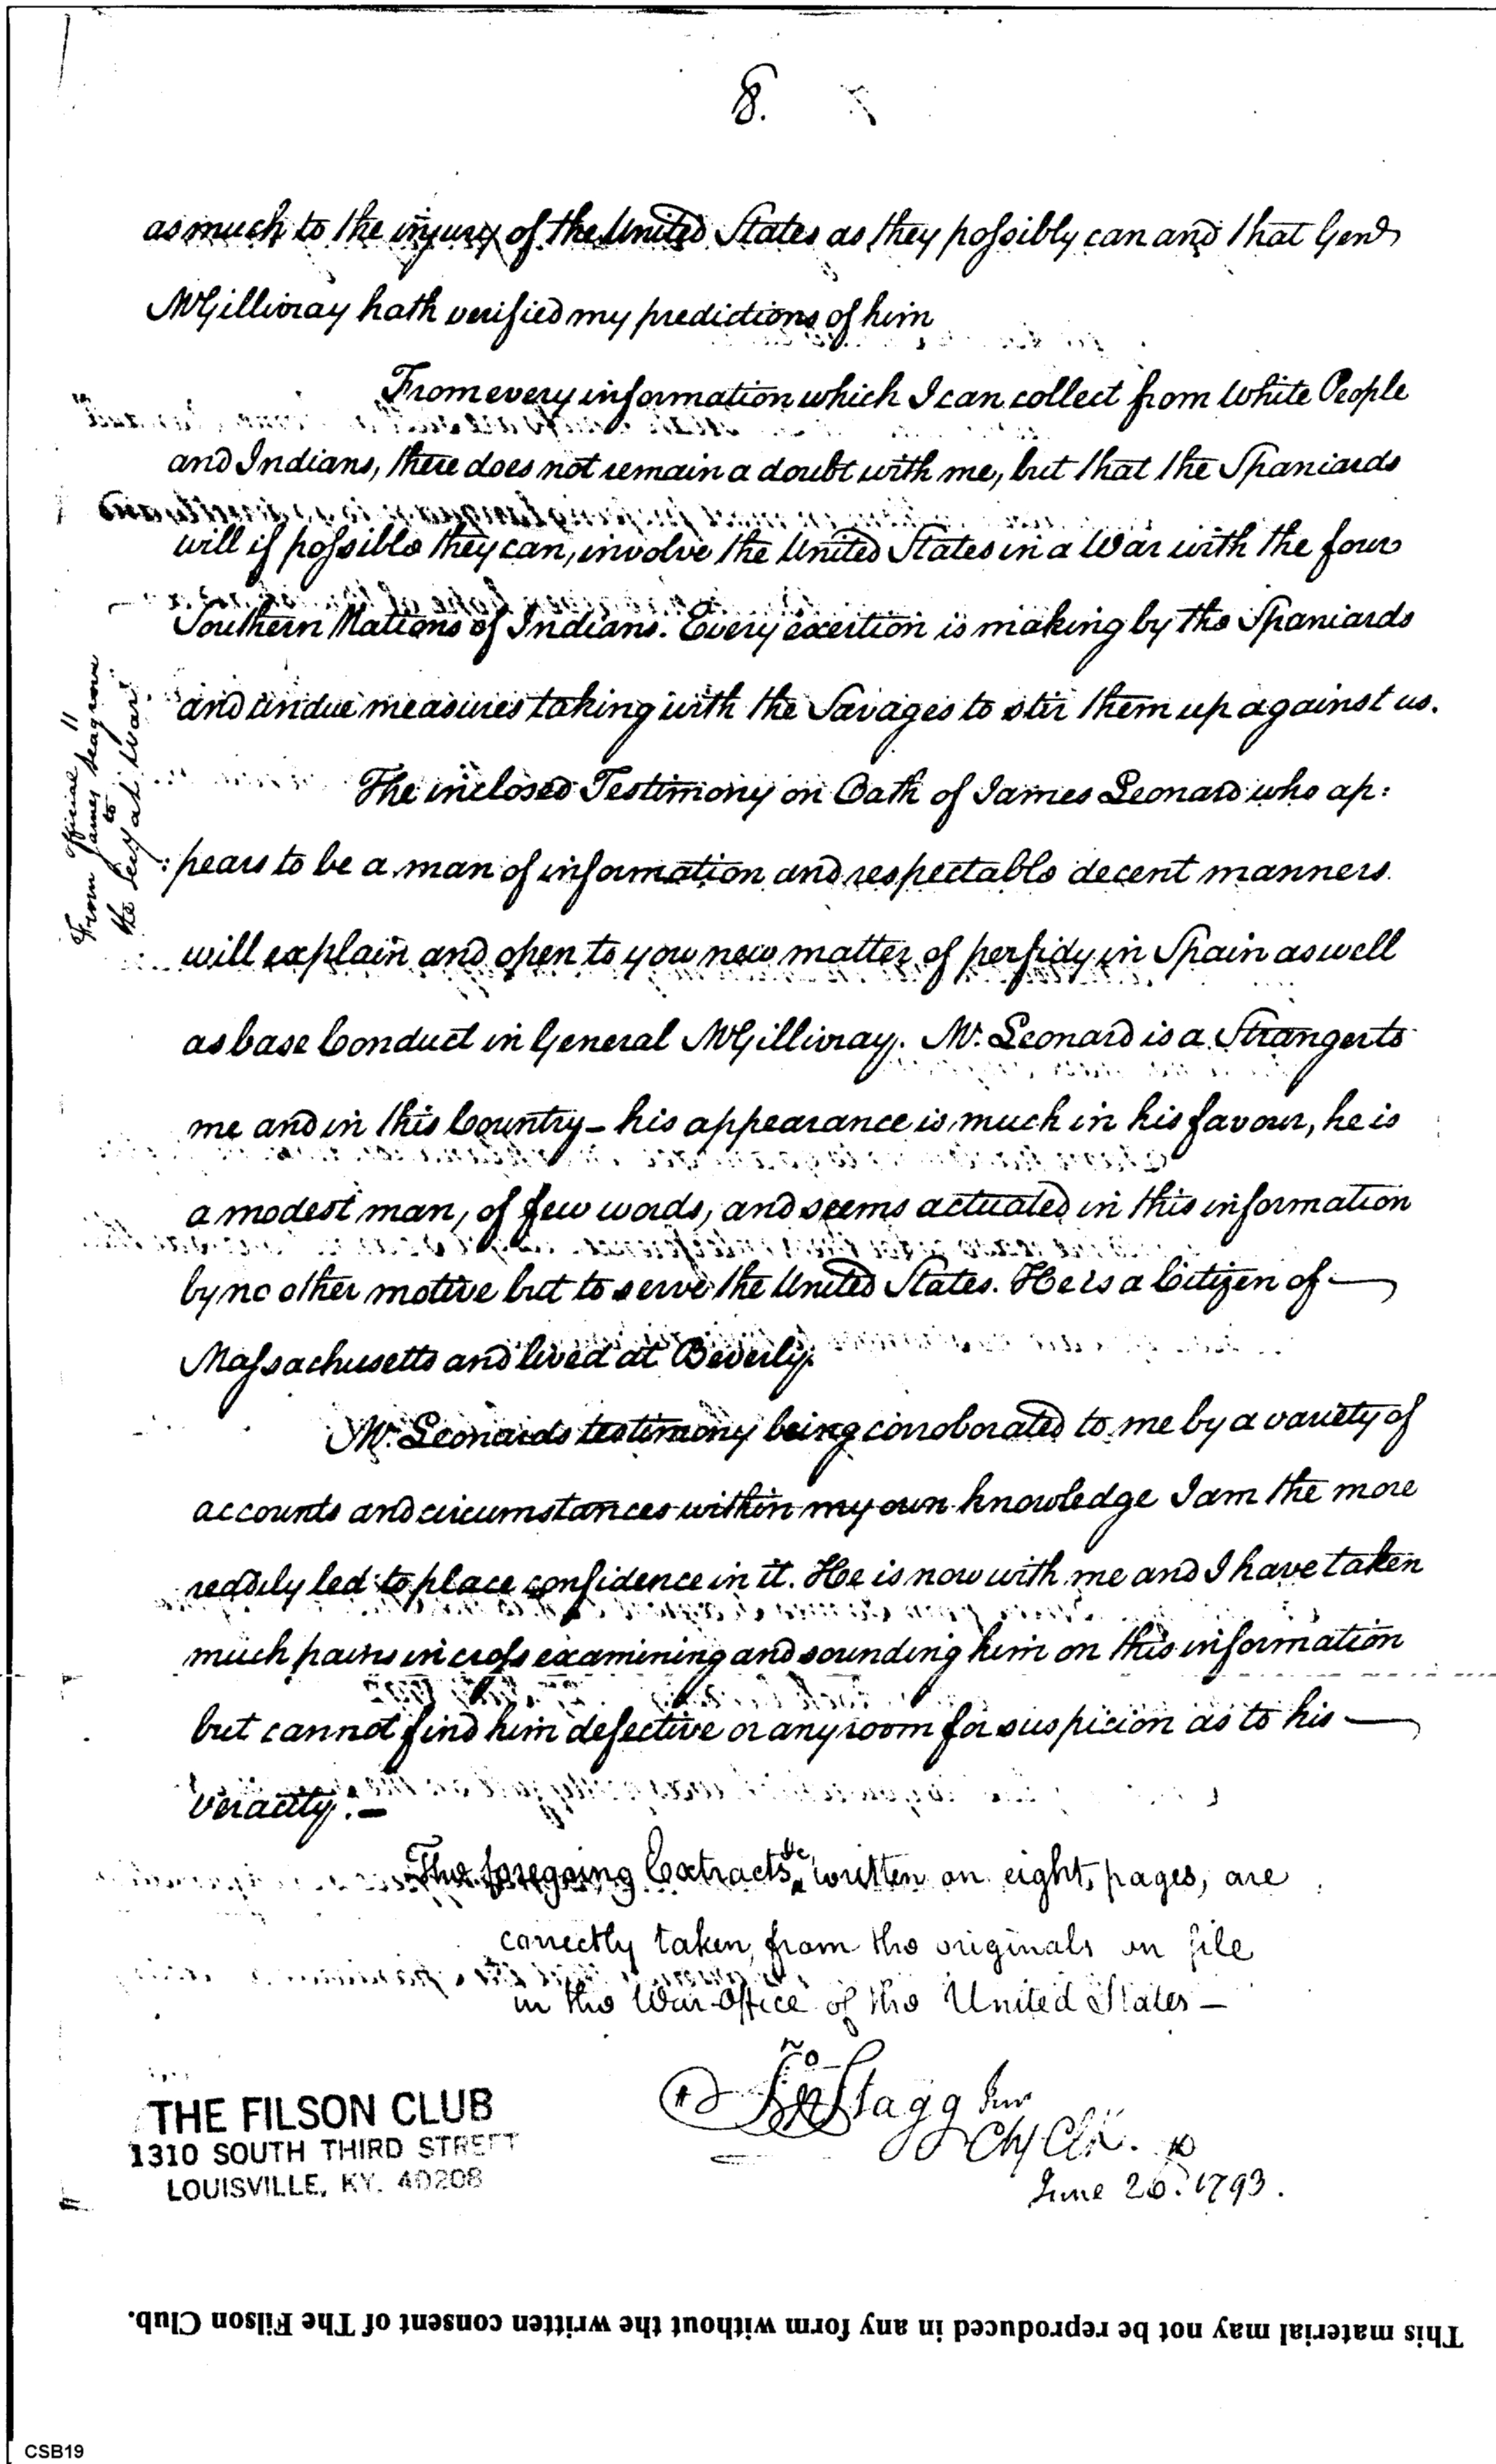 8.
as much to the injury of the United States as they possibly can and that Genl
McGillivray hath verified my predictions of him
From every information which I can collect from White People
and Indians, there does not remain a doubt with me, but that the Spaniards
will if possible they can, involve the United States in a War with the four
Southern Nations of Indians. Every exertion is making by the Spaniards
and undue measures taking with the Savages to stir them up against us.
The inclosed Testimony on Oath of James Leonard who ap:
:pears to be a man of information and respectable decent manners
will explain and open to you new matter of perfidy in Spain as well
as base Conduct in General McGillivray. Mr. Leonard is a Stranger to
me and in this Country – his appearance is much in his favour, he is
a modest man, of few words, and seems actuated in this information
by no other motive but to serve the United States. He is a Citizen of —
Massachusetts and lived at Beverly.
Mr. Leonards testimony being corroborated to me by a variety of
accounts and circumstances within my own knowledge I am the more
readily led to place confidence in it. He is now with me and I have taken
much pains in cross examining and sounding him on this information
but cannot find him defective or any room for suspicion as to his —
veracity. –
The foregoing Extracts &c, written on eight, pages, are
correctly taken, from the originals on file
in the War Office of the United States –
Jno Stagg Junr
Chf Clk.
June 26. 1793.
official
From James Seagrove
to
the Secy at War
THE FILSON CLUB
1310 SOUTH THIRD STREET
LOUISVILLE, KY. 40208
This material may not be reproduced in any form without the written consent of The Filson Club.
CSB19